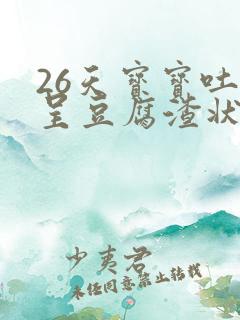 26天宝宝吐
呈豆腐渣状
少夷君
未经同意禁止转载